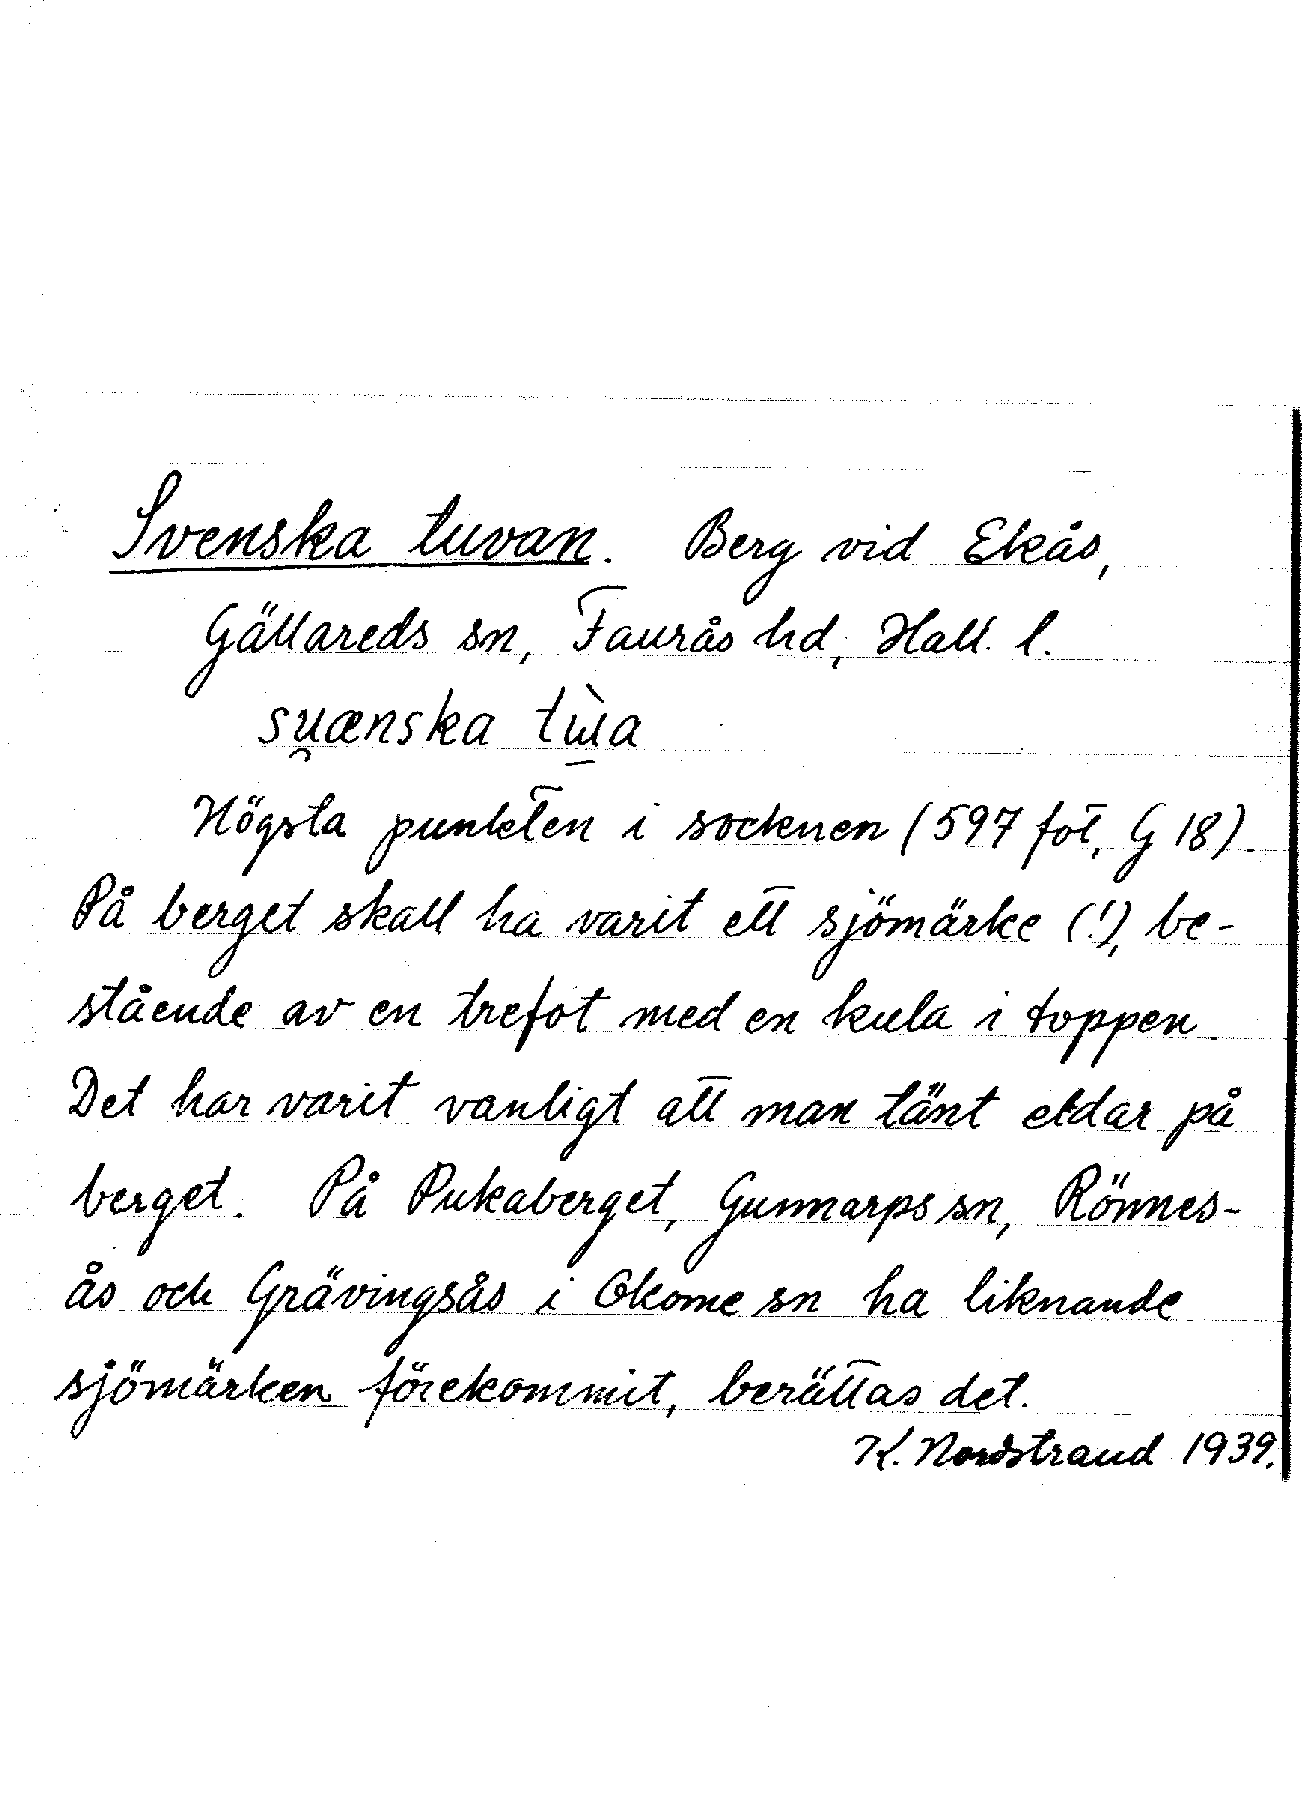 Svenska tuvan. Berg vid Ekås,
Gällareds sn, Faurås hd, Hall. l.
su̯ænska
Högsta punkten i socknen (597 fot, G 18).
På berget skall ha varit ett sjömärke (!), be-
stående av en trefot med en kula i toppen.
Det har varit vanligt att man tänt eldar på
berget. På Pukaberget, Gunnarps sn, Rönnes-
ås och Grävingsås i Okome sn ha liknande
sjömärken förekommit, berättas det.
K. Nordstrand 1939.